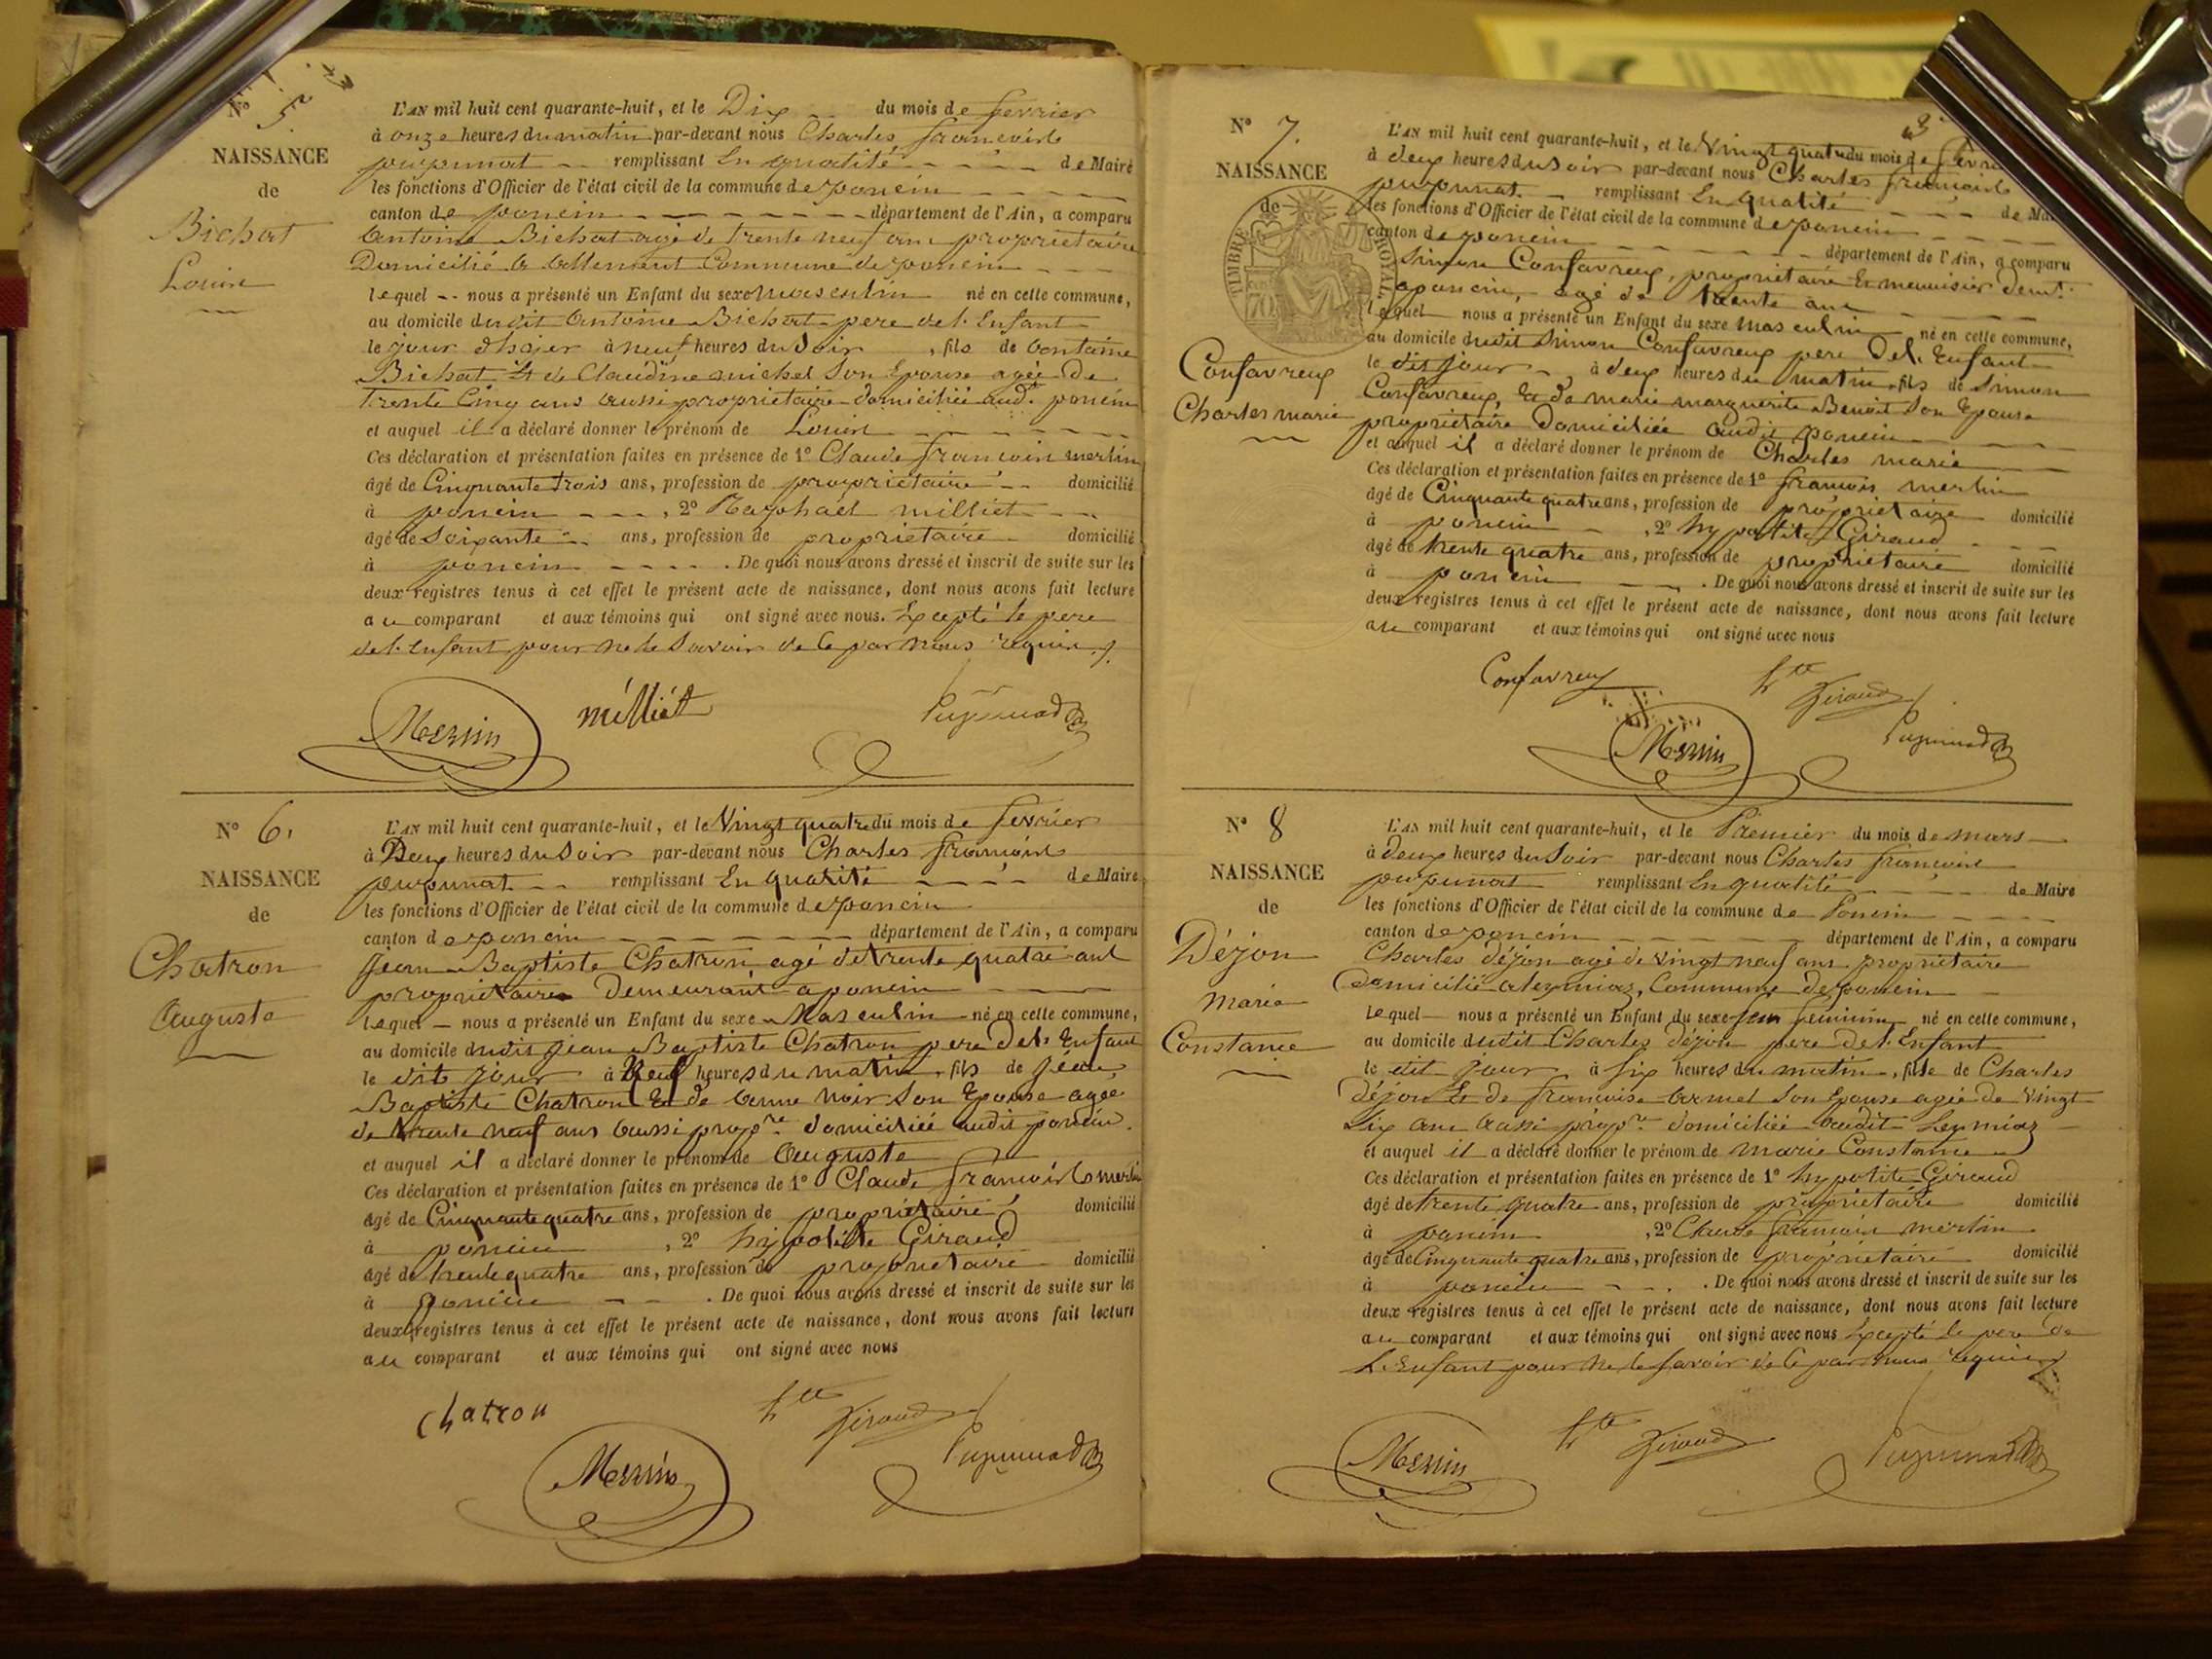 N° 5.
NAISSANCE
de
Bichat
Louis
L'AN mil huit cent quarante-huit, et le Dix du mois de fevrier
à onze heures du matin par-devant nous Charles francois
puzunat remplissant En qualité de Maire
les fonctions d'Officier de l'état civil de la commune de poncin
canton de poncin département de l'Ain, a comparu
Antoine Bichat agé de trente neuf ans proprietaire
Domicilié a allement Commune de poncin
lequel nous a présenté un Enfant du sexe masculin né en cette commune,
au domicile dudit Antoine Bichat pere del. Enfant
le jour d'hier à neuf heures du Soir, fils de Antoine
Bichat Et de Claudine michel Son Epouse agée De
trente Cinq ans aussi proprietaire domiciliée aud.t poncin
et auquel il a déclaré donner le prénom de Louis
Ces déclaration et présentation faites en présence de 1° Claude francois merlin
âgé de Cinquante trois ans, profession de proprietaire domicilié
à poncin, 2° Raphael milliet
âgé de Soixante ans, profession de proprietaire domicilié
à poncin. De quoi nous avons dressé et inscrit de suite sur les
deux registres tenus à cet effet le présent acte de naissance, dont nous avons fait lecture
au comparant et aux témoins qui ont signé avec nous. Excepté le pere
del. Enfant pour ne le Savoir de Ce par nous requis
Merlin milliet
N° 6.
NAISSANCE
de
Chatron
Auguste
L'AN mil huit cent quarante-huit, et le Vingt quatre du mois de fevrier
à Deux heures du Soir par-devant nous Charles francois
puzunat remplissant En qualité de Maire
les fonctions d'Officier de l'état civil de la commune de poncin
canton de poncin département de l'Ain, a comparu
Jean Baptiste Chatron agé de trente quatre ans
proprietaire Demeurant a poncin
lequel nous a présenté un Enfant du sexe Masculin né en cette commune,
au domicile dudit jean Baptiste Chatron pere del. Enfant
le dit jour à Neuf heures du matin, fils de jean
Baptiste Chatron Et de Anne Noir Son Epouse agée
de trente neuf ans aussi prop.re domiciliée audit poncin.
et auquel il a déclaré donner le prénom de Auguste
Ces déclaration et présentation faites en présence de 1° Claude francois merlin
âgé de Cinquante quatre ans, profession de proprietaire domicilié
à poncin, 2° hypolite Giraud
âgé de trente quatre ans, profession de proprietaire domicilié
à poncin. De quoi nous avons dressé et inscrit de suite sur les
deux registres tenus à cet effet le présent acte de naissance, dont nous avons fait lecture
au comparant et aux témoins qui ont signé avec nous
chatron hte Giraud
Merlin
N° 7.
NAISSANCE
de
TIMBRE ROYAL
Confavreux
Charles marie
L'AN mil huit cent quarante-huit, et le Vingt quatre du mois de
à deux heures du soir par-devant nous Charles francois
puzunat remplissant En qualité
les fonctions d'Officier de l'état civil de la commune de poncin
canton de poncin département de l'Ain, a comparu
Simon Confavreux, proprietaire Et menuisier demt.
a poncin, agé de trente ans
lequel nous a présenté un Enfant du sexe masculin né en cette commune,
au domicile dudit Simon Confavreux pere Del. Enfant
le dit jour à deux heures du matin, fils de Simon
Confavreux, Et de marie marguerite Benoit Son Epouse
proprietaire Domiciliée audit poncin
et auquel il a déclaré donner le prénom de Charles marie
Ces déclaration et présentation faites en présence de 1° francois merlin
âgé de Cinquante quatre ans, profession de proprietaire domicilié
à poncin, 2° hypolite Giraud
âgé de trente quatre ans, profession de proprietaire domicilié
à poncin. De quoi nous avons dressé et inscrit de suite sur les
deux registres tenus à cet effet le présent acte de naissance, dont nous avons fait lecture
au comparant et aux témoins qui ont signé avec nous
Confavreux hte Giraud
Merlin
N° 8
NAISSANCE
de
Déjon
marie
Constance
L'AN mil huit cent quarante-huit, et le Premier du mois de mars
à deux heures du Soir par-devant nous Charles francois
puzunat remplissant En qualité de Maire
les fonctions d'Officier de l'état civil de la commune de Poncin
canton de poncin département de l'Ain, a comparu
Charles déjon agé de vingt neuf ans proprietaire
Domicilié a leymiaz, Commune de poncin
Lequel nous a présenté un Enfant du sexe feminin né en cette commune,
au domicile dudit Charles déjon pere del. Enfant
le dit jour à Six heures du matin, fille de Charles
déjon Et de francoise armet Son Epouse agée de Vingt
Six ans aussi prop.re domiciliée audit Leymiaz
et auquel il a déclaré donner le prénom de marie Constance
Ces déclaration et présentation faites en présence de 1° hypolite Giraud
âgé de trente quatre ans, profession de proprietaire domicilié
à poncin, 2° Claude francois merlin
âgé de Cinquante quatre ans, profession de proprietaire domicilié
à poncin. De quoi nous avons dressé et inscrit de suite sur les
deux registres tenus à cet effet le présent acte de naissance, dont nous avons fait lecture
au comparant et aux témoins qui ont signé avec nous Excepté le pere de
L'Enfant pour ne le savoir de Ce par nous requis
Merlin hte Giraud